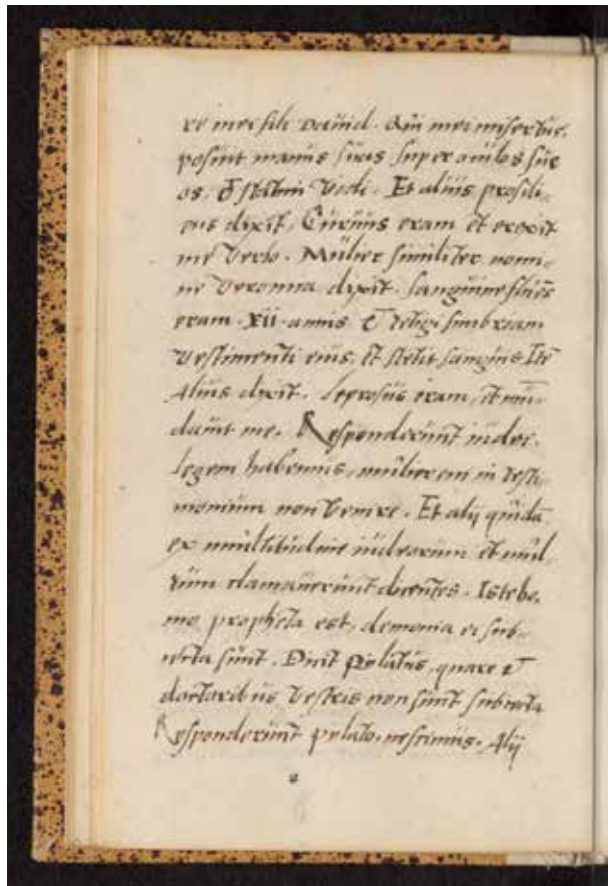 re mei fili Dauid. Qui mei misertus,
posuit manus suas super oculos su
os. & statim Vidi. Et alius prosili-
ens dixit, Curuus eram et erexit
me Verbo. Mulier similiter nomi-
ne Veronna dixit. Sanguine flues
eram XII annis & tetigi fimbriam
Vestimenti eius, et stetit sanguis Itē
Alius dixit. Leprosus eram, et mū-
dauit me. Responderunt iudei.
Legem habemus, mulierem in testi-
monium non Venire. Et alij quidā
ex multitudine iudeorum et mul-
rum clamauerunt dicentes. Iste ho,
mo propheta est, demonia ei sub-
iecta sunt. Dixit Pylatus, quare &
doctoribus Vestris non sunt subiecta
Responderunt pylato, nescimus. Alij